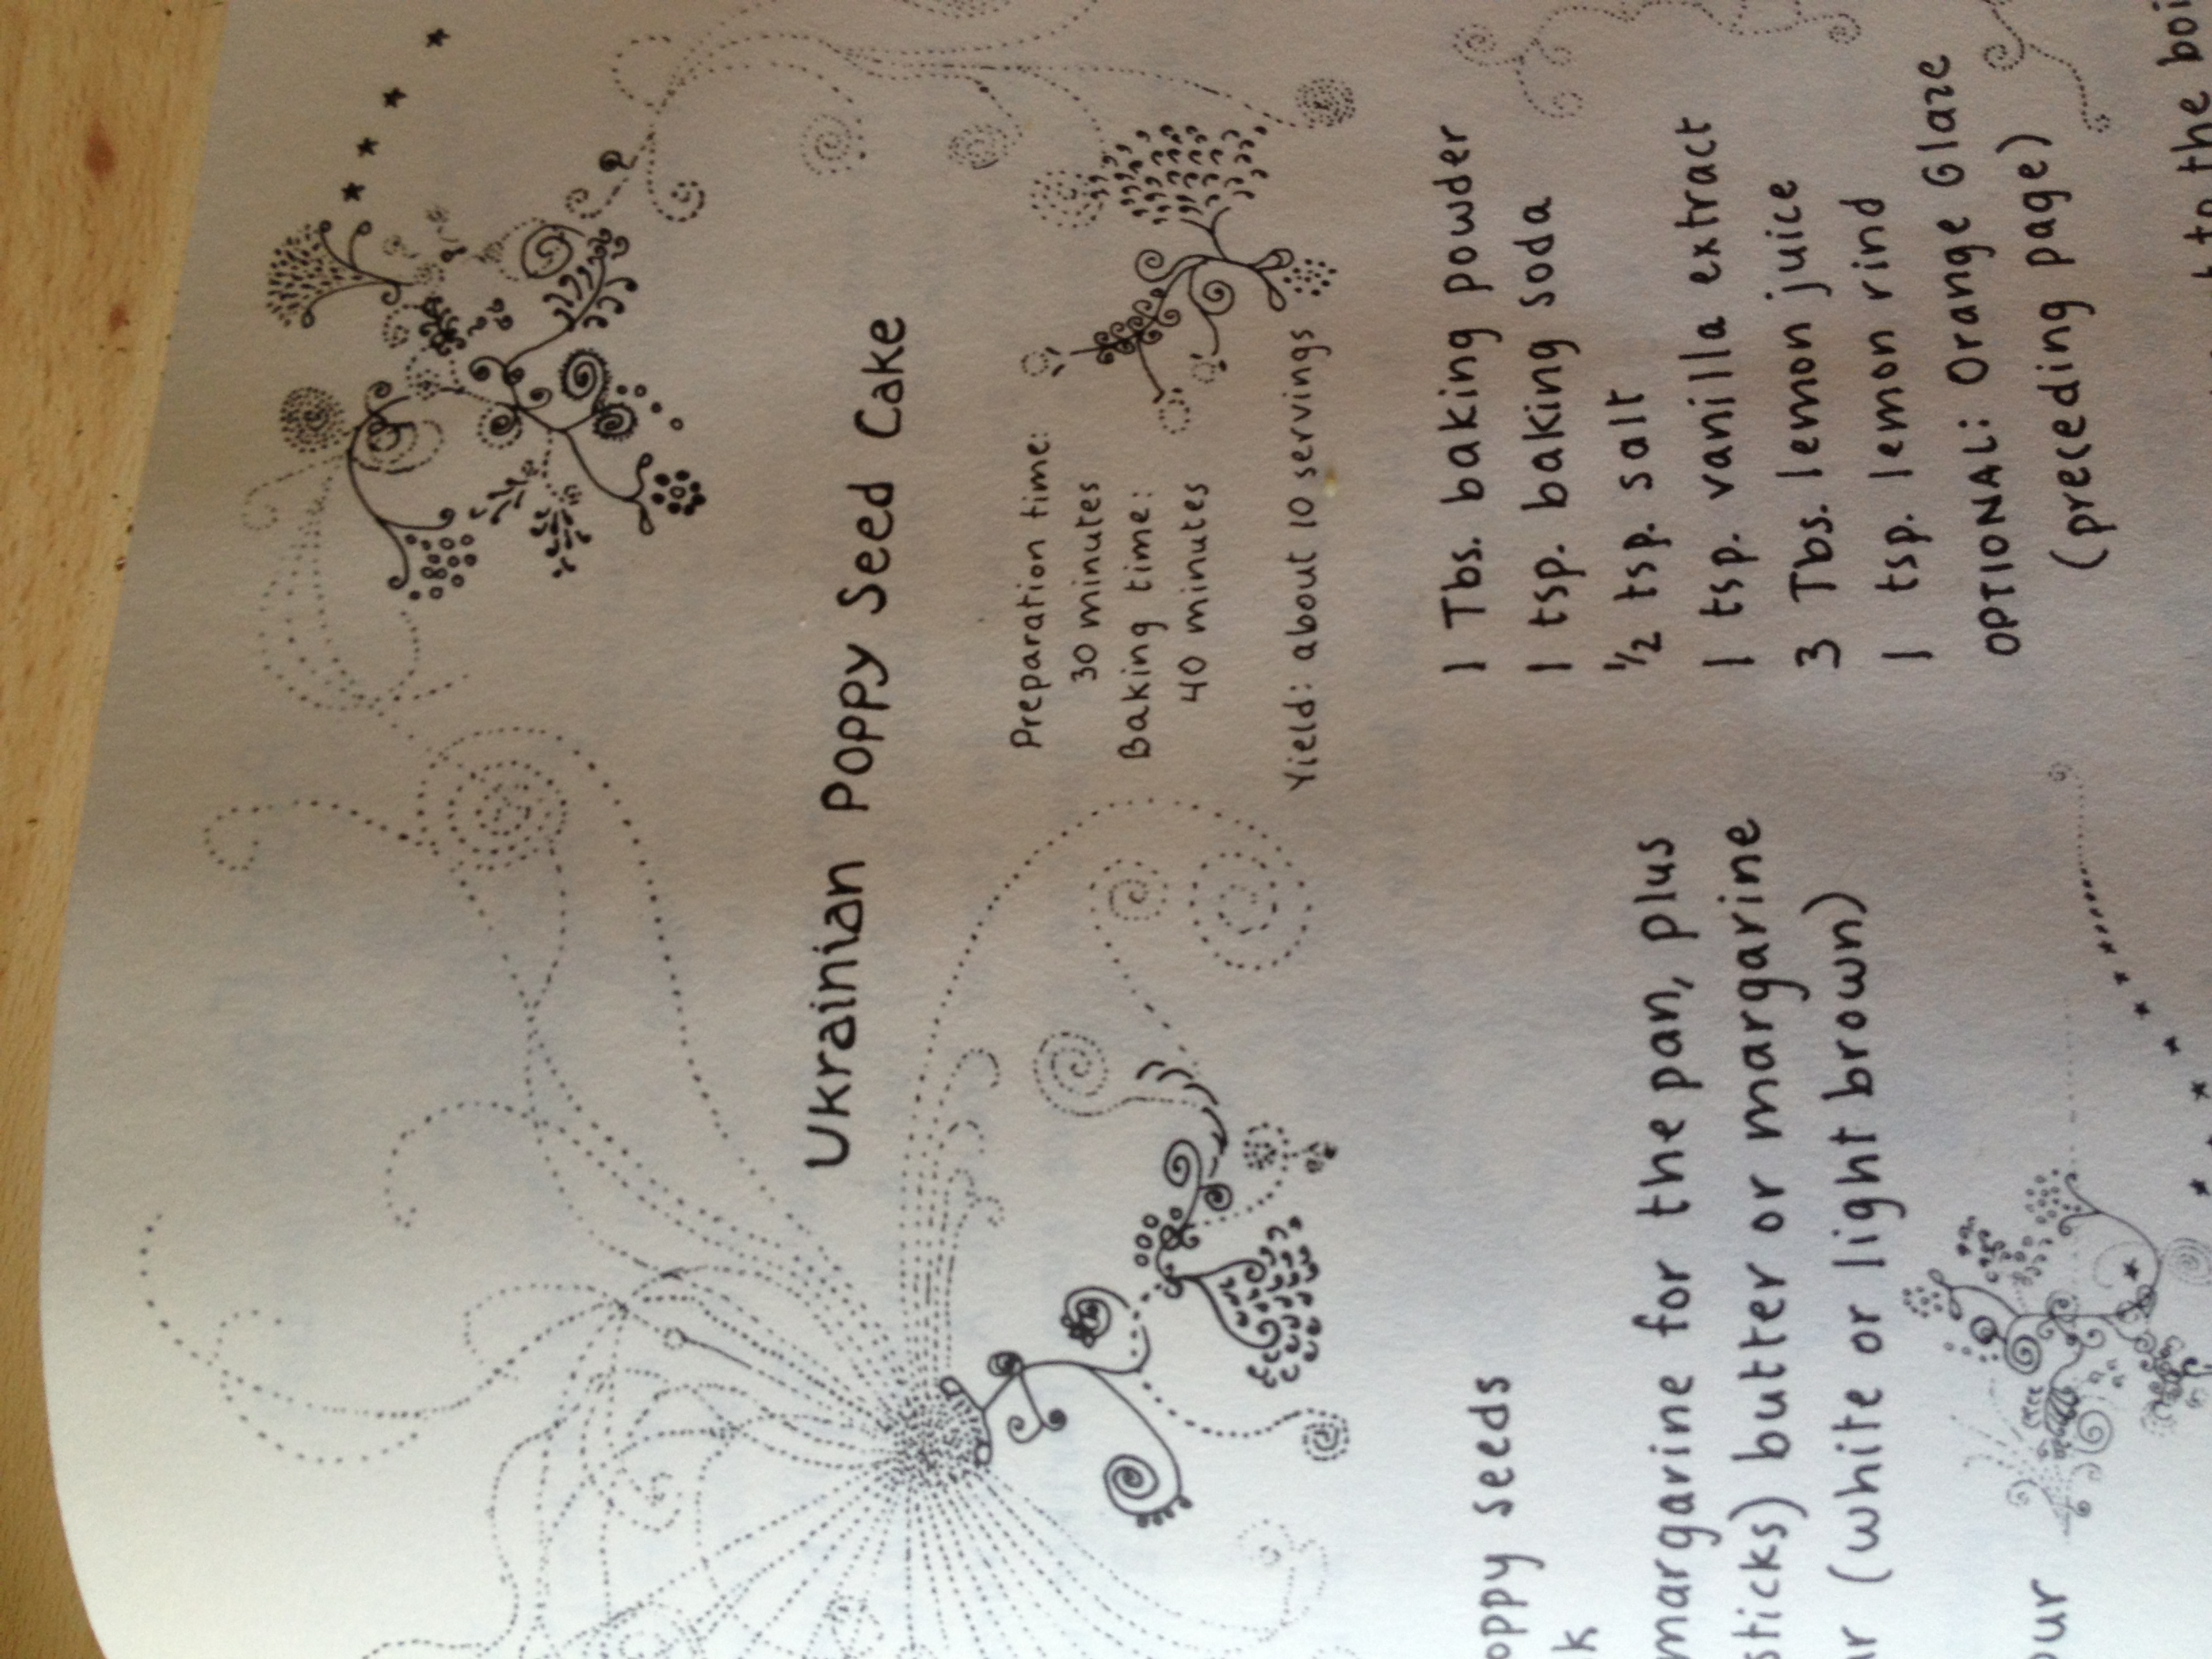 Ukrainian Poppy Seed Cake
Preparation time:
30 minutes
Baking time:
40 minutes
Yield: about 10 servings
oppy seeds
k
margarine for the pan, plus
sticks) butter or margarine
ar (white or light brown)
our
1 Tbs. baking powder
1 tsp. baking soda
½ tsp. salt
1 tsp. vanilla extract
3 Tbs. lemon juice
1 tsp. lemon rind
OPTIONAL: Orange Glaze
(preceding page)
to the boi